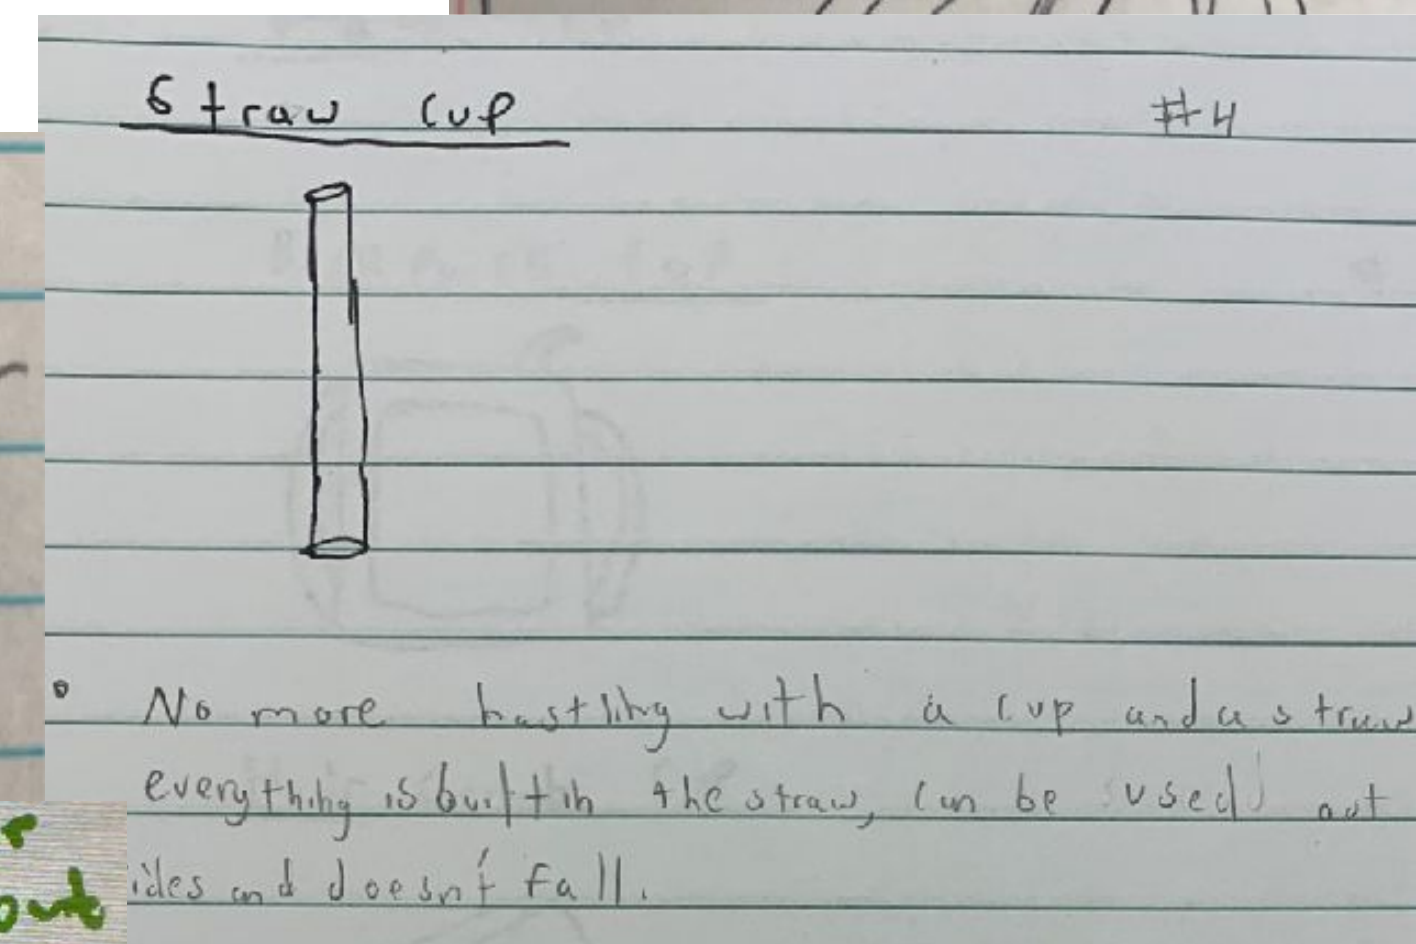 Straw cup
#4
No more hastling with a cup and a straw
everything is built in the straw, can be used out
ides and doesn't fall.